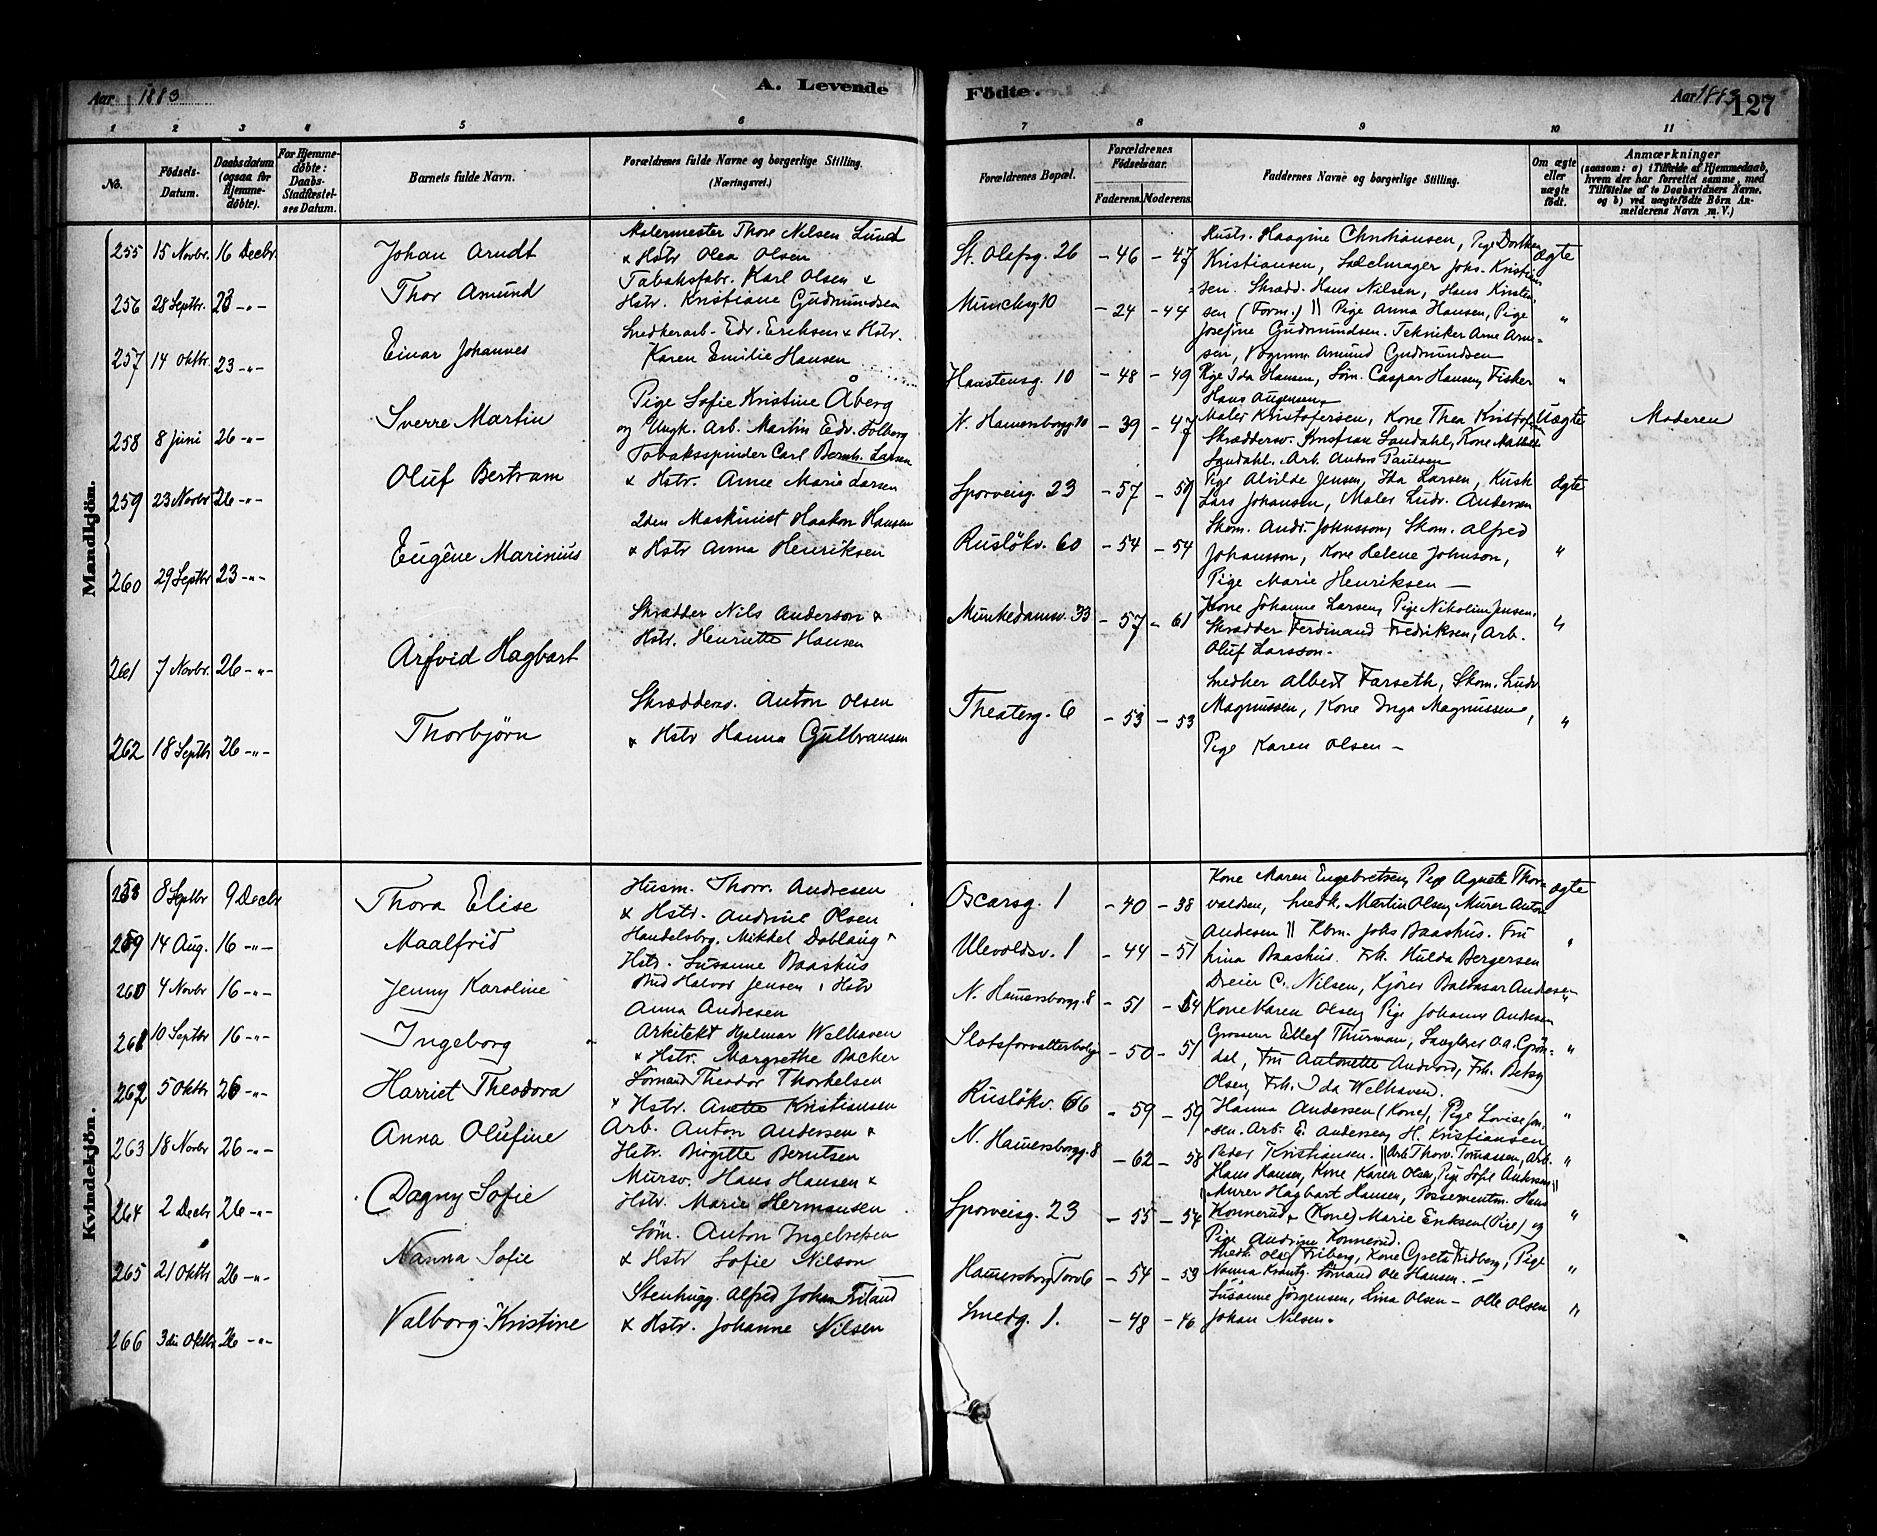 Aar 1883
A. Levende
Födte.
Aar 1883
127
1 2 3 4 5 6 7 8 9 10 11
No.
Födsels-Datum.
Daabsdatum (ogsaa for Hjemme-döbte).
For Hjemme-döbte: Daabs-Stadfæstel-ses Datum.
Barnets fulde Navn.
Forældrenes fulde Navne og borgerlige Stilling. (Næringsvei.)
Forældrenes Bopæl.
Forældrenes Födselsaar.
Faderens. Moderens.
Faddernes Navne og borgerlige Stilling.
Om ægte eller uægte födt.
Anmærkninger
(saasom: a) i Tilfælde af Hjemmedaab, hvem der har forrettet samme, med Tilföielse af to Daabsvidners Navne, og b) ved uægtefödte Börn An-melderens Navn m. V.)
Mandkjön.
255 15 Novbr. 16 Decbr. Johan Arndt
Malermester Thore Nilsen Lund
& Hstr Olea Olsen
St. Olafsg. 26 - 46 - 47
Hustr. Haagine Christiansen, Pige Dorthea
Kristiansen, Sadelmager Johs. Kristian-
sen. Skrædd. Hans Nilsen, Hans Kristen-
ægte
256 28 Septbr. 23 -"- Thor Amund
Tabaksfabr. Karl Olsen &
Hstr. Kristiane Gudmundsen
Munchsg 10 - 24 - 44
sen (Form.) || Pige Anna Hansen, Pige
Josefine Gudmundsen. Tekniker Arne Arne-
sen, Vognm. Amund Gudmundsen
"
257 14 Oktbr 23 -"- Einar Johannes
Snedkerarb. Edv. Eriksen & Hstr.
Karen Emilie Hansen
Haustensg. 10 - 48 - 49
Pige Ida Hansen, Söm. Caspar Hansen, Fisker
Hans Augensen
"
258 8 Juni 26 -"- Sverre Martin
Pige Sofie Kristine Åberg
og Ungk. Arb. Martin Edv. Solberg
N. Hamersborgg. 10 - 39 - 47
Maler Kristofersen, Kone Thea Kristofersen
Skræddersv. Kristian Sandahl, Kone Mathilde
Sandahl. Arb. Anders Paulsen
Uægte
Moderen
259 23 Novbr 26 -"- Oluf Bertram
Tobaksspinder Carl Bernh. Larsen
& Hstr. Anne Marie Larsen
Sporveisg. 23 - 57 - 59
Pige Alvilde Jensen, Ida Larsen, Kusk
Lars Johansen, Maler Ludv. Andersen
ægte
260 29 Septbr 23 -"- Eugêne Marinius
2den Maskinist Haakon Hansen
& Hstr Anna Henriksen
Rusløkv. 60 - 54 - 54
Skom. Andr. Johnsson, Skom. Alfred
Johansson, Kone Helene Johnson,
Pige Marie Henriksen —
"
261 7 Novbr. 26 -"- Arfvid Hagbart
Skrædder Nils Anderson &
Hstr. Henriette Hansen
Munkedamsv. 33 - 57 - 61
Kone Johanne Larsen, Pige Nikoline Jensen,
Skrædder Ferdinand Fredriksen, Arb.
Oluf Larsson.
"
262 18 Septbr 26 -"- Thorbjörn
Skræddersv. Anton Olsen
& Hstr Hanna Gulbransen
Theaterg. 6 - 53 - 53
Snedker Albert Farseth, Skom. Ludv
Magnussen, Kone Inga Magnussen,
Pige Karen Olsen —
"
Kvindekjön.
258 8 Septbr 9 Decbr Thora Elise
Husm. Thorv. Andresen
& Hstr. Andrine Olsen
Oscarsg. 1 - 40 - 38
Kone Maren Engebretsen, Pige Agnete Thor-
valdsen, Snedk. Martin Olsen, Murer Anton
ægte
259 14 Aug. 16 -"- Maalfrid
Handelsbrg. Mikkel Doblaug &
Hstr. Susanne Baashus
Ulevoldsv. 1 - 44 - 51
Andresen || Kbm. Johs Baashus. Fru
Lina Baashus. Frk. Hulda Bergersen
"
260 4 Novbr 16 -"- Jenny Karoline
Bud Halvor Jensen & Hstr
Anna Andresen
N. Hamersborgg. 8 - 51 - 54
Dreier C. Nilsen, Kjörer Baltasar Andresen
Kone Karen Olsen, Pige Johanne Andresen
"
261 10 Septbr 16 -"- Ingeborg
Arkitekt Hjalmar Welhaven
& Hstr. Margrethe Backer
Slotsforvalterbolig - 50 - 51
Grosserer Ellef Thurman, Sanglærer O.A. Grön-
dal, Fru Antonette Andvord, Frk. Betsy
Olsen, Frk. Ida Welhaven.
"
262 5 Oktbr 26 -"- Harriet Theodora
Sömand Theodor Thorkelsen
& Hstr. Anette Kristiansen
Rusløkv. 66 - 59 - 59
Hanna Andersen (Kone), Pige Lovise Jon-
sen. Arb. E. Andersen, H. Kristiansen
"
263 18 Novbr 26 -"- Anna Olufine
Arb. Anton Andersen &
Hstr. Birgitte Berntsen
N. Hamersborgg. 8 - 62 - 58
Peder Kristiansen. || Arb. Thorv. Tomassen, Arb.
Hans Hansen, Kone Karen Olsen, Pige Sofie Andersen ||
"
264 2 Decbr 26 -"- Dagny Sofie
Mursv. Hans Hansen &
Hstr. Marie Hermansen
Sporveisg. 23 - 55 - 54
Murer Hagbart Hansen, Possementm. Hans
Konnerud & (Kone) Marie Eriksen (Pige) og
Pige Andrine Konnerud.
"
265 21 Oktbr 26 -"- Nanna Sofie
Söm. Anton Ingebretsen
& Hstr Sofie Nilson
Hamersborg Torv 6 - 54 - 53
Snedk. Olaf Friberg, Kone Greta Fridberg, Pige
Nanna Krantz. Sömand Ole Hansen. -
"
266 3die Oktbr 26 -"- Valborg Kristine
Stenhugg. Alfred Johan Friland
& Hstr. Johanne Nilsen
Smedg. 1. - 48 - 46
Susanne Jörgensen, Lina Olsen — Olle Olsen
Johan Nilsen.
"